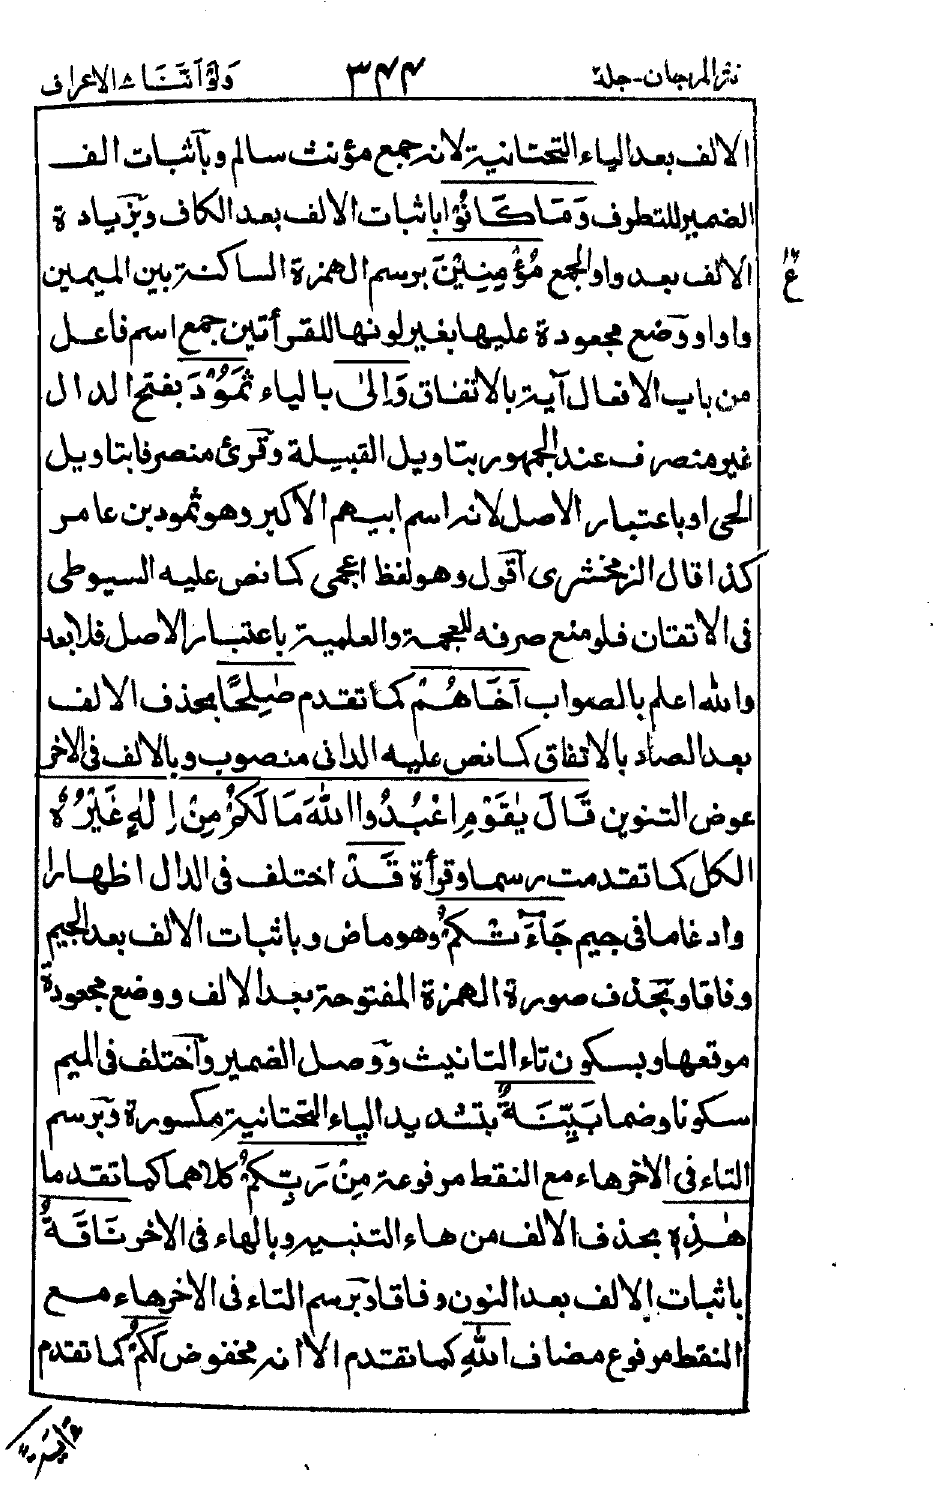 نثر المرجان - جلد٢ ٣٤٤ ولو اننا ٨ الاعراف
الالف بعد الياء التحتانية لانه جمع مؤنث سالم وبآثبات الف
الضمير للتطوف وَمَا كَانُوْا باثبات الالف بعد الكاف وبزيادة
الالف بعد واو الجمع مُؤْمِنِيْنَ برسم الهمزة الساكنة بين الميمين
واوا ووضع مجعودة عليها بغير لونها للقرأتين جمع اسم فاعل
من باب الافعال آية بالاتفاق وَاِلٰى بالياء ثَمُوْدَ بفتح الدال
غير منصرف عند الجمهور بتاويل القبيلة وقرئ منصرفا بتاويل
الحى او باعتبار الاصل لانه اسم ابيهم الاكبر وهو ثمود بن عامر
كذا قال الزمخشرى آقول وهو لفظ اعجمى كما نص عليه السيوطى
فى الاتقان فلو منع صرفه للعجمة والعلمية باعتبار الاصل فلا بعد
والله اعلم بالصواب اَخَاهُمْ كما تقدم صٰلِحًا بحذف الالف
بعد الصاد بالاتفاق كما نص عليه الدانى منصوب وبالالف فى الاخر
عوض التنوين قَالَ يٰقَوْمِ اعْبُدُوا اللّٰهَ مَا لَكُمْ مِنْ اِلٰهٍ غَيْرُهٗ
الكل كما تقدمت رسما وقرأة قَدْ اختلف فى الدال اظهارا
وادغاما فى جيم جَآءَتْكُمْ وهو ماض وباثبات الالف بعد الجيم
وفاقا وبحذف صورة الهمزة المفتوحة بعد الالف ووضع مجعودة
موقعها وبسكون تاء التانيث ووصل الضمير وآختلف فى الميم
سكونا وضما بَيِّنَةٌ بتشديد الياء التحتانية مكسورة وبرسم
التاء فى الاخر هاء مع النقط مرفوعة مِنْ رَبِّكُمْ كلاهما كما تقدما
هٰذِهٖ بحذف الالف من هاء التنبيه وبالهاء فى الاخر نَاقَةُ
باثبات الالف بعد النون وفاقا وبرسم التاء فى الاخر هاء مع
النقط مرفوع مضاف اللّٰهِ كما تقدم الا انه مخفوض لَكُمْ كما تقدم
ع
اٰيَةً